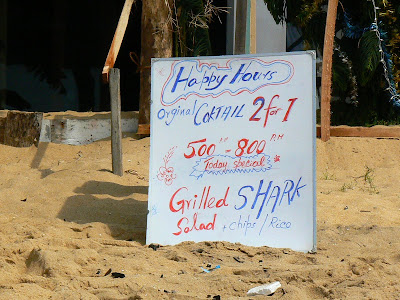 Happy Hours
Orginal COKTAIL 2 for 1
500 PM - 800 PM
Today special
Grilled SHARK
Salad + chips / Rice